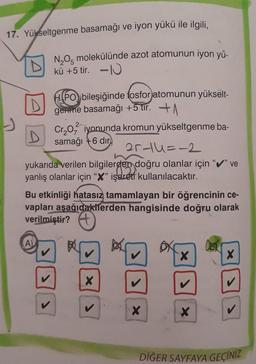 17. Yükseltgenme basamağı ve iyon yükü ile ilgili,
D N₂O₅ molekülünde azot atomunun iyon yü-
kü +5 tir.
D bileşiğinde fosfor atomunun yükselt-
genme basamağı +5 tir. +1
D Cr₂O₇²⁻ iyonunda kromun yükseltgenme ba-
samağı +6 dır.
2r-14=-2
yukarıda verilen bilgilerden doğru olanlar için "✔" ve
yanlış olanlar için "✘" işareti kullanılacaktır.
Bu etkinliği hatasız tamamlayan bir öğrencinin ce-
vapları aşağıdakilerden hangisinde doğru olarak
verilmiştir?
A) B) C) D) E)
✔ ✔ ✔ ✘ ✘
✔ ✘ ✔ ✔ ✔
✔ ✔ ✘ ✘ ✔
DİĞER SAYFAYA GEÇİNİZ